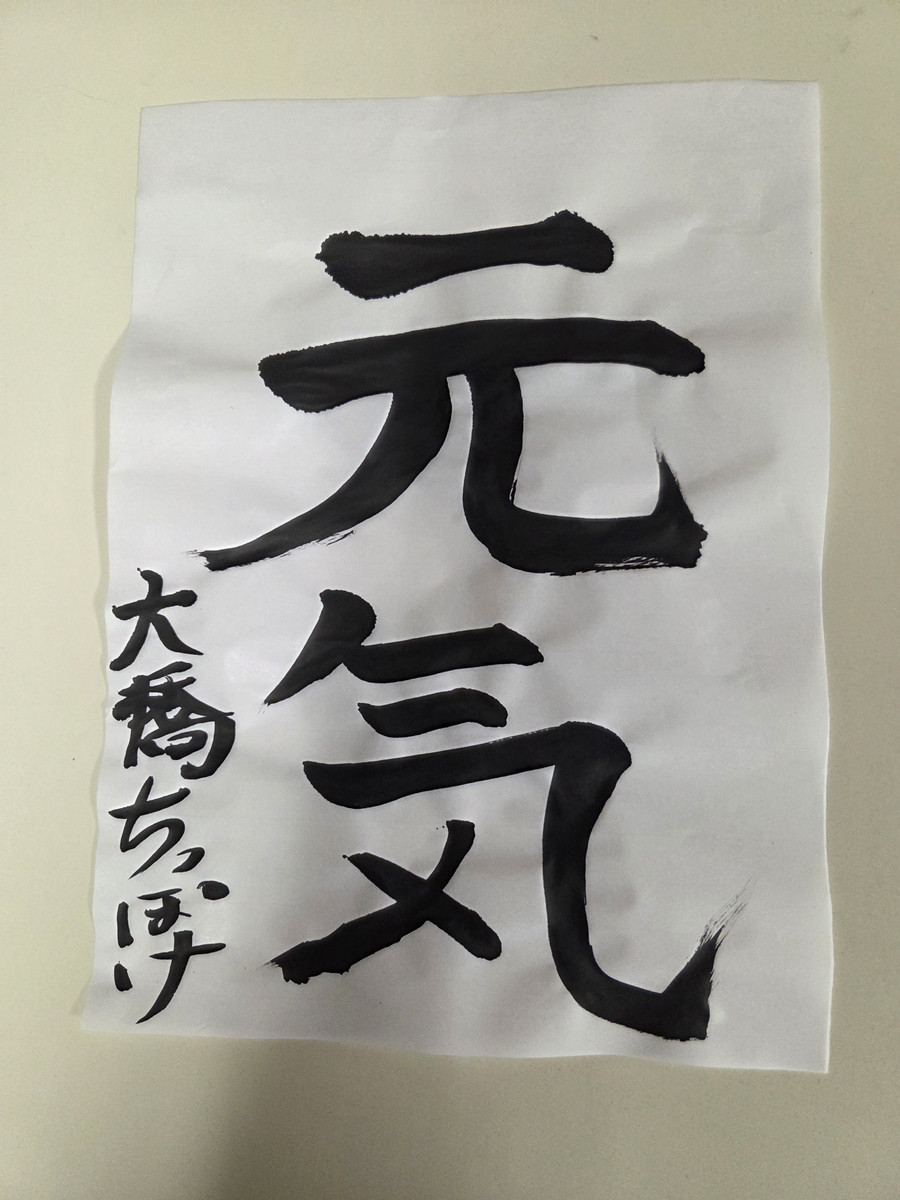 元気
大橋ちっぽけ